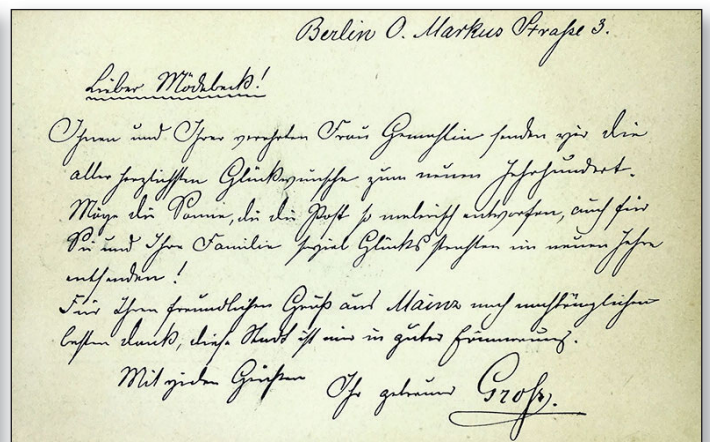 Berlin O. Markus Straße 3.
Lieber Mödebeck!
Ihnen und Ihrer verehrten Frau Gemahlin senden wir die
aller herzlichsten Glückwünsche zum neuen Jahrhundert.
Möge die Sonne, die die Post so malerisch entworfen, auch für
Sie und Ihre Familie soviel Glücksstrahlen im neuen Jahre
entsenden!
Für Ihren freundlichen Gruß aus Mainz noch nachträglichen
besten Dank, diese Stadt ist mir in guter Erinnerung.
Mit vielen Grüßen Ihr getreuer Groß.